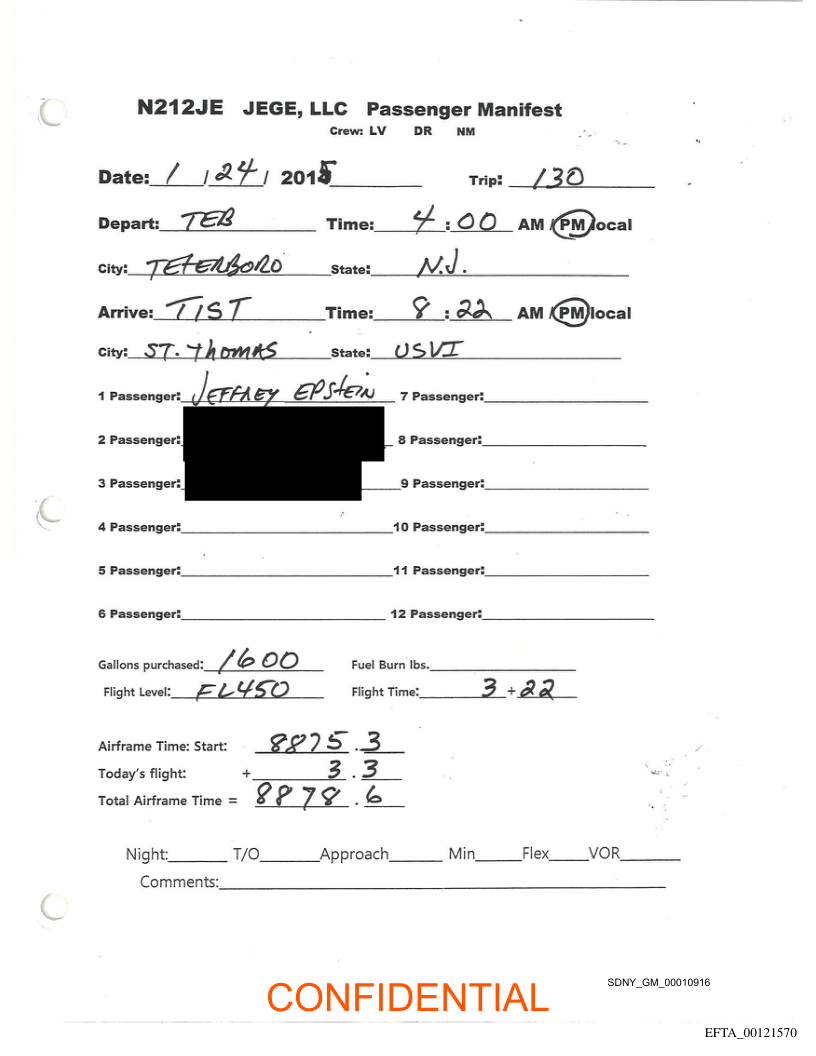 N212JE JEGE, LLC Passenger Manifest
Crew: LV DR NM
Date: 1 / 24 / 2015 Trip: 130
Depart: TEB Time: 4:00 AM / PM local
City: TETERBORO State: N.J.
Arrive: TIST Time: 8:22 AM / PM local
City: ST. Thomas State: USVI
1 Passenger: JEFFREY EPStEIN 7 Passenger:
2 Passenger: 8 Passenger:
3 Passenger: 9 Passenger:
4 Passenger: 10 Passenger:
5 Passenger: 11 Passenger:
6 Passenger: 12 Passenger:
Gallons purchased: 1600 Fuel Burn lbs.
Flight Level: FL450 Flight Time: 3 + 22
Airframe Time: Start: 8875.3
Today's flight: + 3.3
Total Airframe Time = 8878.6
Night: T/O Approach Min Flex VOR
Comments:
SDNY_GM_00010916
CONFIDENTIAL
EFTA_00121570